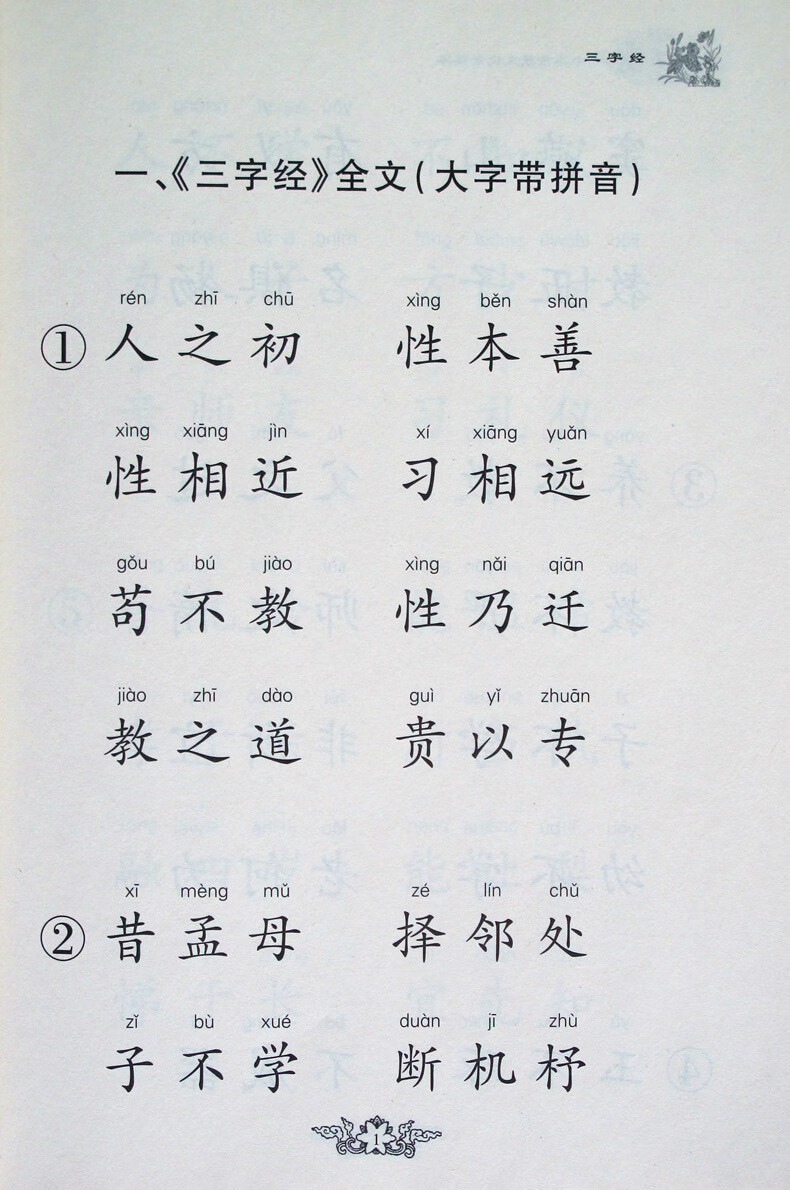 三字经
一、《三字经》全文(大字带拼音)
rén zhī chū xìng běn shàn
①人之初 性本善
xìng xiāng jìn xí xiāng yuǎn
性相近 习相远
gǒu bú jiào xìng nǎi qiān
苟不教 性乃迁
jiào zhī dào guì yǐ zhuān
教之道 贵以专
xī mèng mǔ zé lín chǔ
②昔孟母 择邻处
zǐ bù xué duàn jī zhù
子不学 断机杼
1